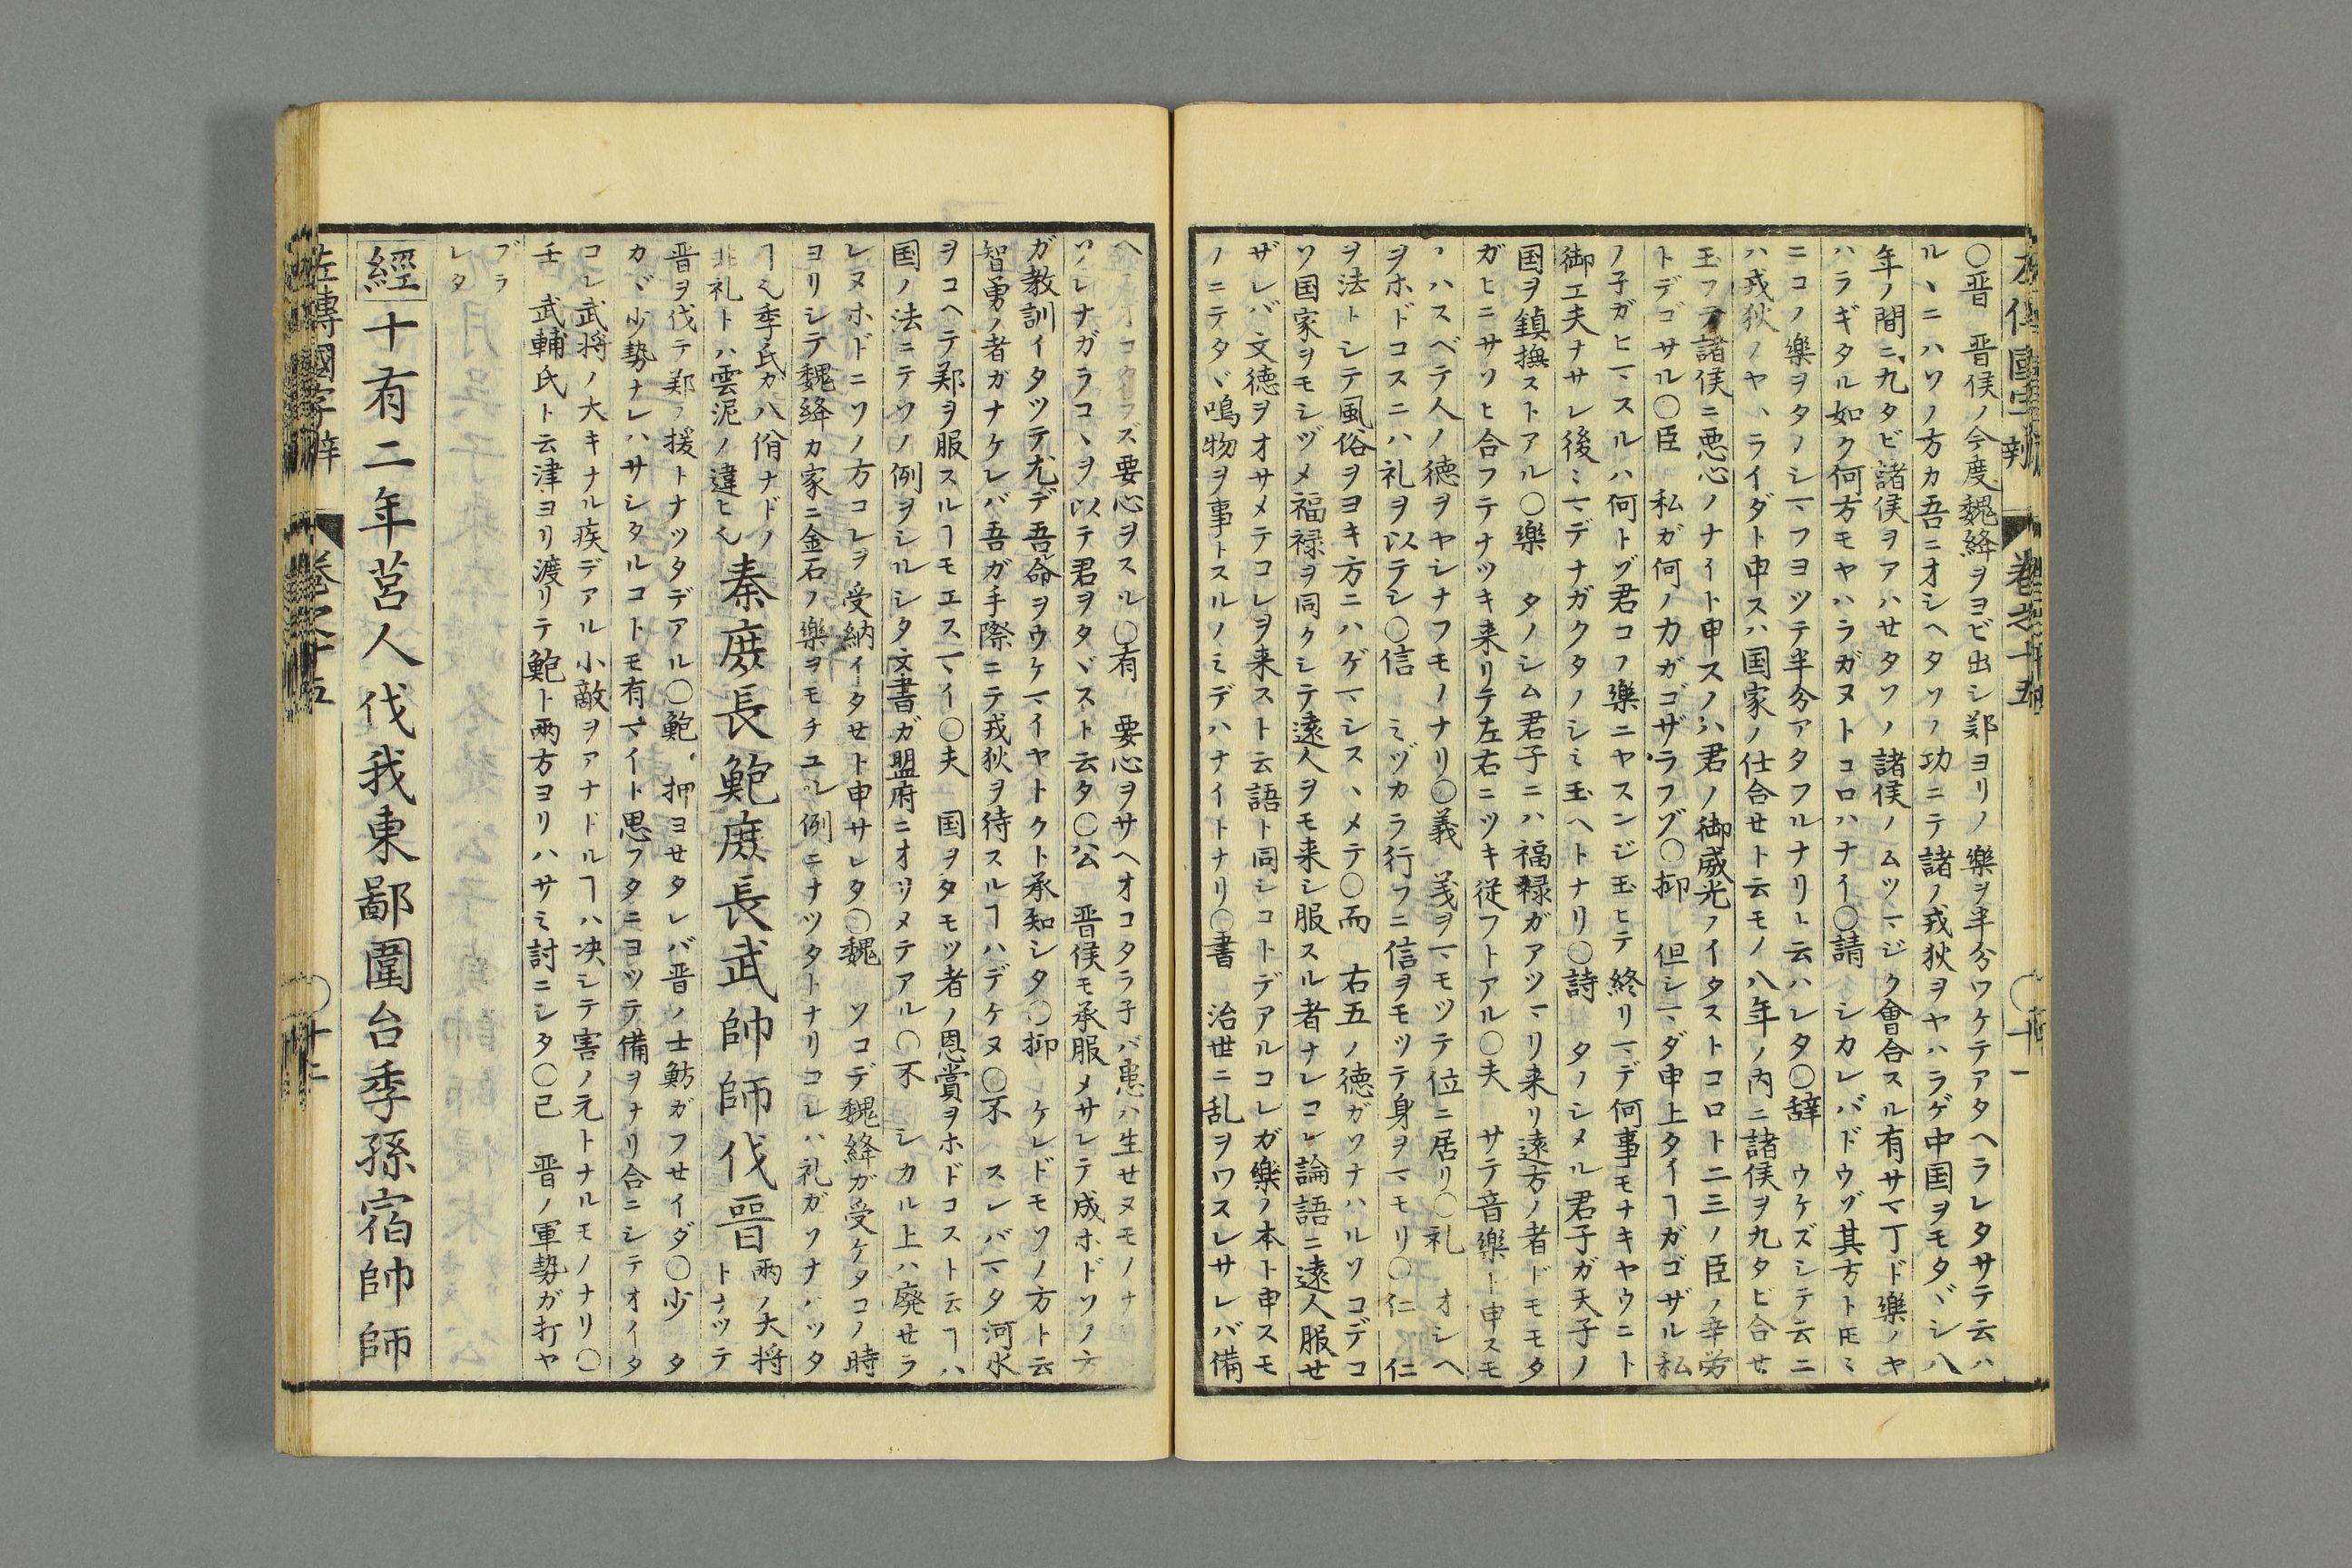 左傳國字辨 卷之十五 〇十一
〇晋 晋侯ノ今度魏絳ヲヨビ出シ鄭ヨリノ樂ヲ半分ワケテアタヘラレタサテ云ハ
ルヽニハソノ方カ吾ニオシヘタソノ功ニテ諸ノ戎狄ヲヤハラゲ中国ヲモタヾシ八
年ノ間ニ九タビ諸侯ヲアハセタソノ諸侯ノムツマジク會合スル有サマ丁ド樂ノヤ
ハラギタル如ク何方モヤハラガヌトコロハナイ〇請 シカレバドウゾ其方トモミ
ニコノ樂ヲタノシマフヨツテ半分アタフルナリト云ハレタ〇辞 ウケズシテ云ニ
ハ戎狄ノヤハライダト申スハ国家ノ仕合セト云モノ八年ノ内ニ諸侯ヲ九タビ合セ
玉フテ諸侯ニ悪心ノナイト申スノハ君ノ御威光ノイタストコロト二三ノ臣ノ辛労
トデゴサル〇臣 私ガ何ノ力ガゴザラフゾ〇抑 但シマダ申上タイヿガゴザル私
ノ子ガヒマスルハ何トゾ君コノ樂ニヤスンジ玉ヒテ終リマデ何事モナキヤウニト
御工夫ナサレ後ミマデナガクタノシミ玉ヘトナリ〇詩 タノシメル君子ガ天子ノ
国ヲ鎮撫ストアル〇樂 タノシム君子ニハ福禄ガアツマリ来リ遠方ノ者ドモモタ
ガヒニサソヒ合フテナツキ来リテ左右ニツキ従フトアル〇夫 サテ音樂ト申スモ
ノハスベテ人ノ徳ヲヤシナフモノナリ〇義 義ヲマモツテ位ニ居リ〇礼 オシヘ
ヲホドコスニハ礼ヲ以テシ〇信 ミヅカラ行フニ信ヲモツテ身ヲマモリ〇仁 仁
ヲ法トシテ風俗ヲヨキ方ニハゲマシスヽメテ〇而 右五ノ徳ガソナハルソコデコ
ソ国家ヲモシヅメ福禄ヲ同クシテ遠人ヲモ来シ服スル者ナレコレ論語ニ遠人服セ
ザレバ文徳ヲオサメテコレヲ来スト云語ト同シコトデアルコレガ樂ノ本ト申スモ
ノニテタヾ鳴物ヲ事トスルノミデハナイトナリ〇書 治世ニ乱ヲワスレサレバ備
ヘ ズ要心ヲスル〇有 要心ヲサヘオコタラ子バ患ハ生セヌモノナ
ソレナガラコヽヲ以テ君ヲタヾスト云タ〇公 晋侯モ承服メサレテ成ホドソノ方
ガ教訓イタツテ尤デ吾命ヲウケマイヤトクト承知シタ〇抑 ケレドモソノ方ト云
智勇ノ者ガナケレバ吾ガ手際ニテ戎狄ヲ待スルヿハデケヌ〇不 スレバマタ河水
ヲコヘテ鄭ヲ服スルヿモエスマイ〇夫 国ヲタモツ者ノ恩賞ヲホドコスト云ヿハ
国ノ法ニテソノ例ヲシルシタ文書ガ盟府ニオリメテアル〇不 シカル上ハ廃セラ
レヌホドニソノ方コレヲ受納イタセト申サレタ〇魏 ソコデ魏絳ガ受ケタコノ時
ヨリシテ魏絳カ家ニ金石ノ樂ヲモチユル例ニナツタトナリコレハ礼ガソナハツタ
ヿ也季氏ガ八佾ナドノ
非礼トハ雲泥ノ違ヒ也
秦庶長鮑庶長武帥師伐晋
兩ノ大将
トナツテ
晋ヲ伐テ鄭ノ援トナツタデアル〇鮑 押ヨセタレバ晋ノ士魴ガフセイダ〇少 タ
カヾ少勢ナレハサシタルコトモ有マイト思フタニヨツテ備ヲナリ合ニシテオイタ
コレ武将ノ大キナル疾デアル小敵ヲアナドルヿハ决シテ害ノ元トナルモノナリ〇
壬 武輔氏ト云津ヨリ渡リテ鮑ト兩方ヨリハサミ討ニシタ〇己 晋ノ軍勢ガ打ヤ
ブラ
レタ
經十有二年莒人伐我東鄙圍台季孫宿帥師
左傳國字辨 卷之十五 〇十二